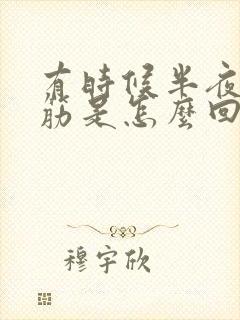 有時候半夜
筋是怎麼回
穆宇欣